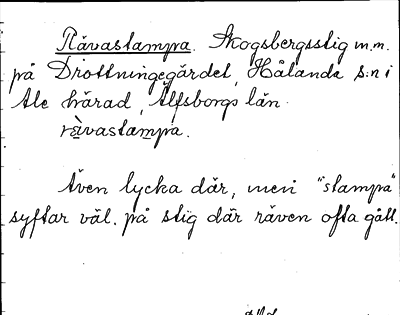 Rävastampa. Skogsbergsstig m.m.
på Drottningegärdet, Hålanda s:n i
Ale härad, Älfsborgs län.
rävastampa.
Även lycka där, men "stampa"
syftar väl. på stig där räven ofta gått.